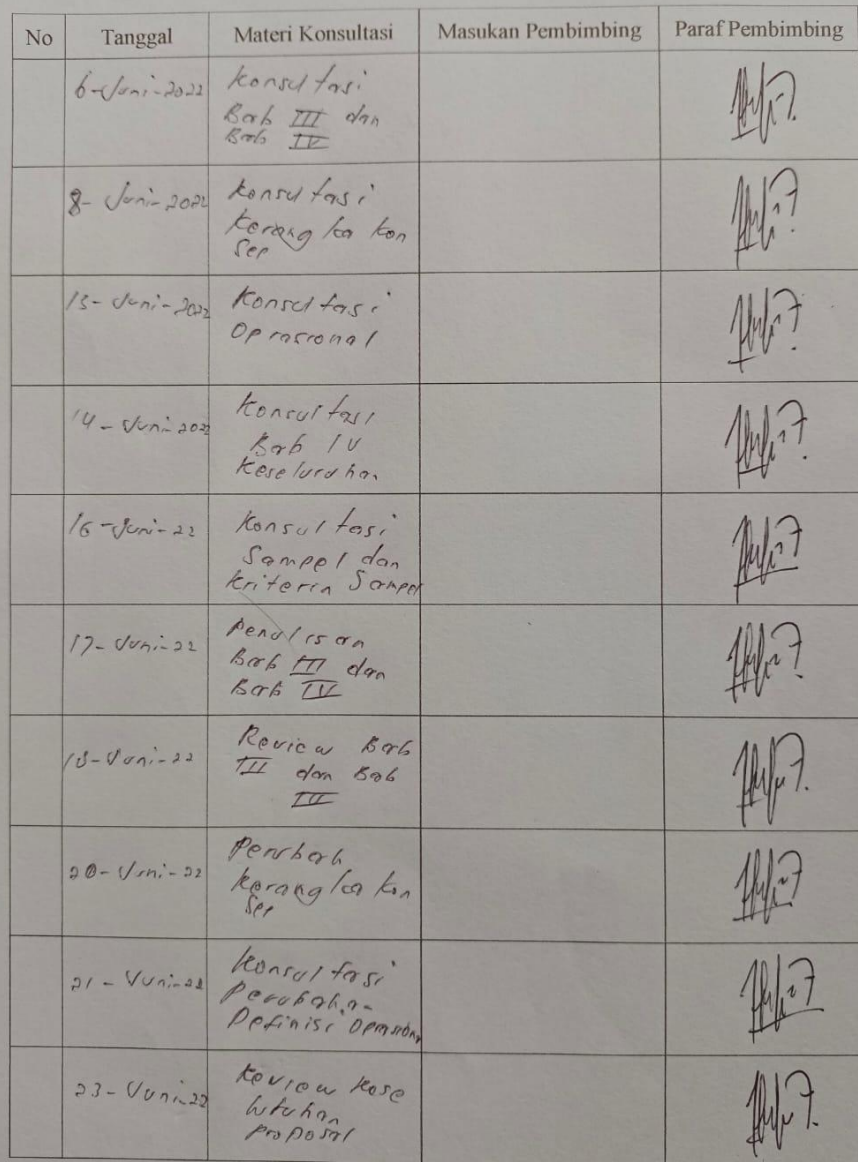 No Tanggal Materi Konsultasi Masukan Pembimbing Paraf Pembimbing
6-Juni-2022 Konsultasi
Bab III dan
Bab IV
8-Juni-2022 Konsultasi
Kerangka Kon
Sep
13-Juni-2022 Konsultasi
Oprasional
14-Juni-2022 Konsultasi
Bab IV
Keseluruhan
16-Juni-22 Konsultasi
Sampel dan
Kriteria Sampel
17-Juni-22 Penulisan
Bab III dan
Bab IV
18-Juni-22 Review Bab
III dan Bab
IV
20-Juni-22
Kerangka Kon
Sep
21-Juni-22 Konsultasi
Perubahan
Definisi Oprasional
23-Juni-22 Review Kese
luruhan
Proposal